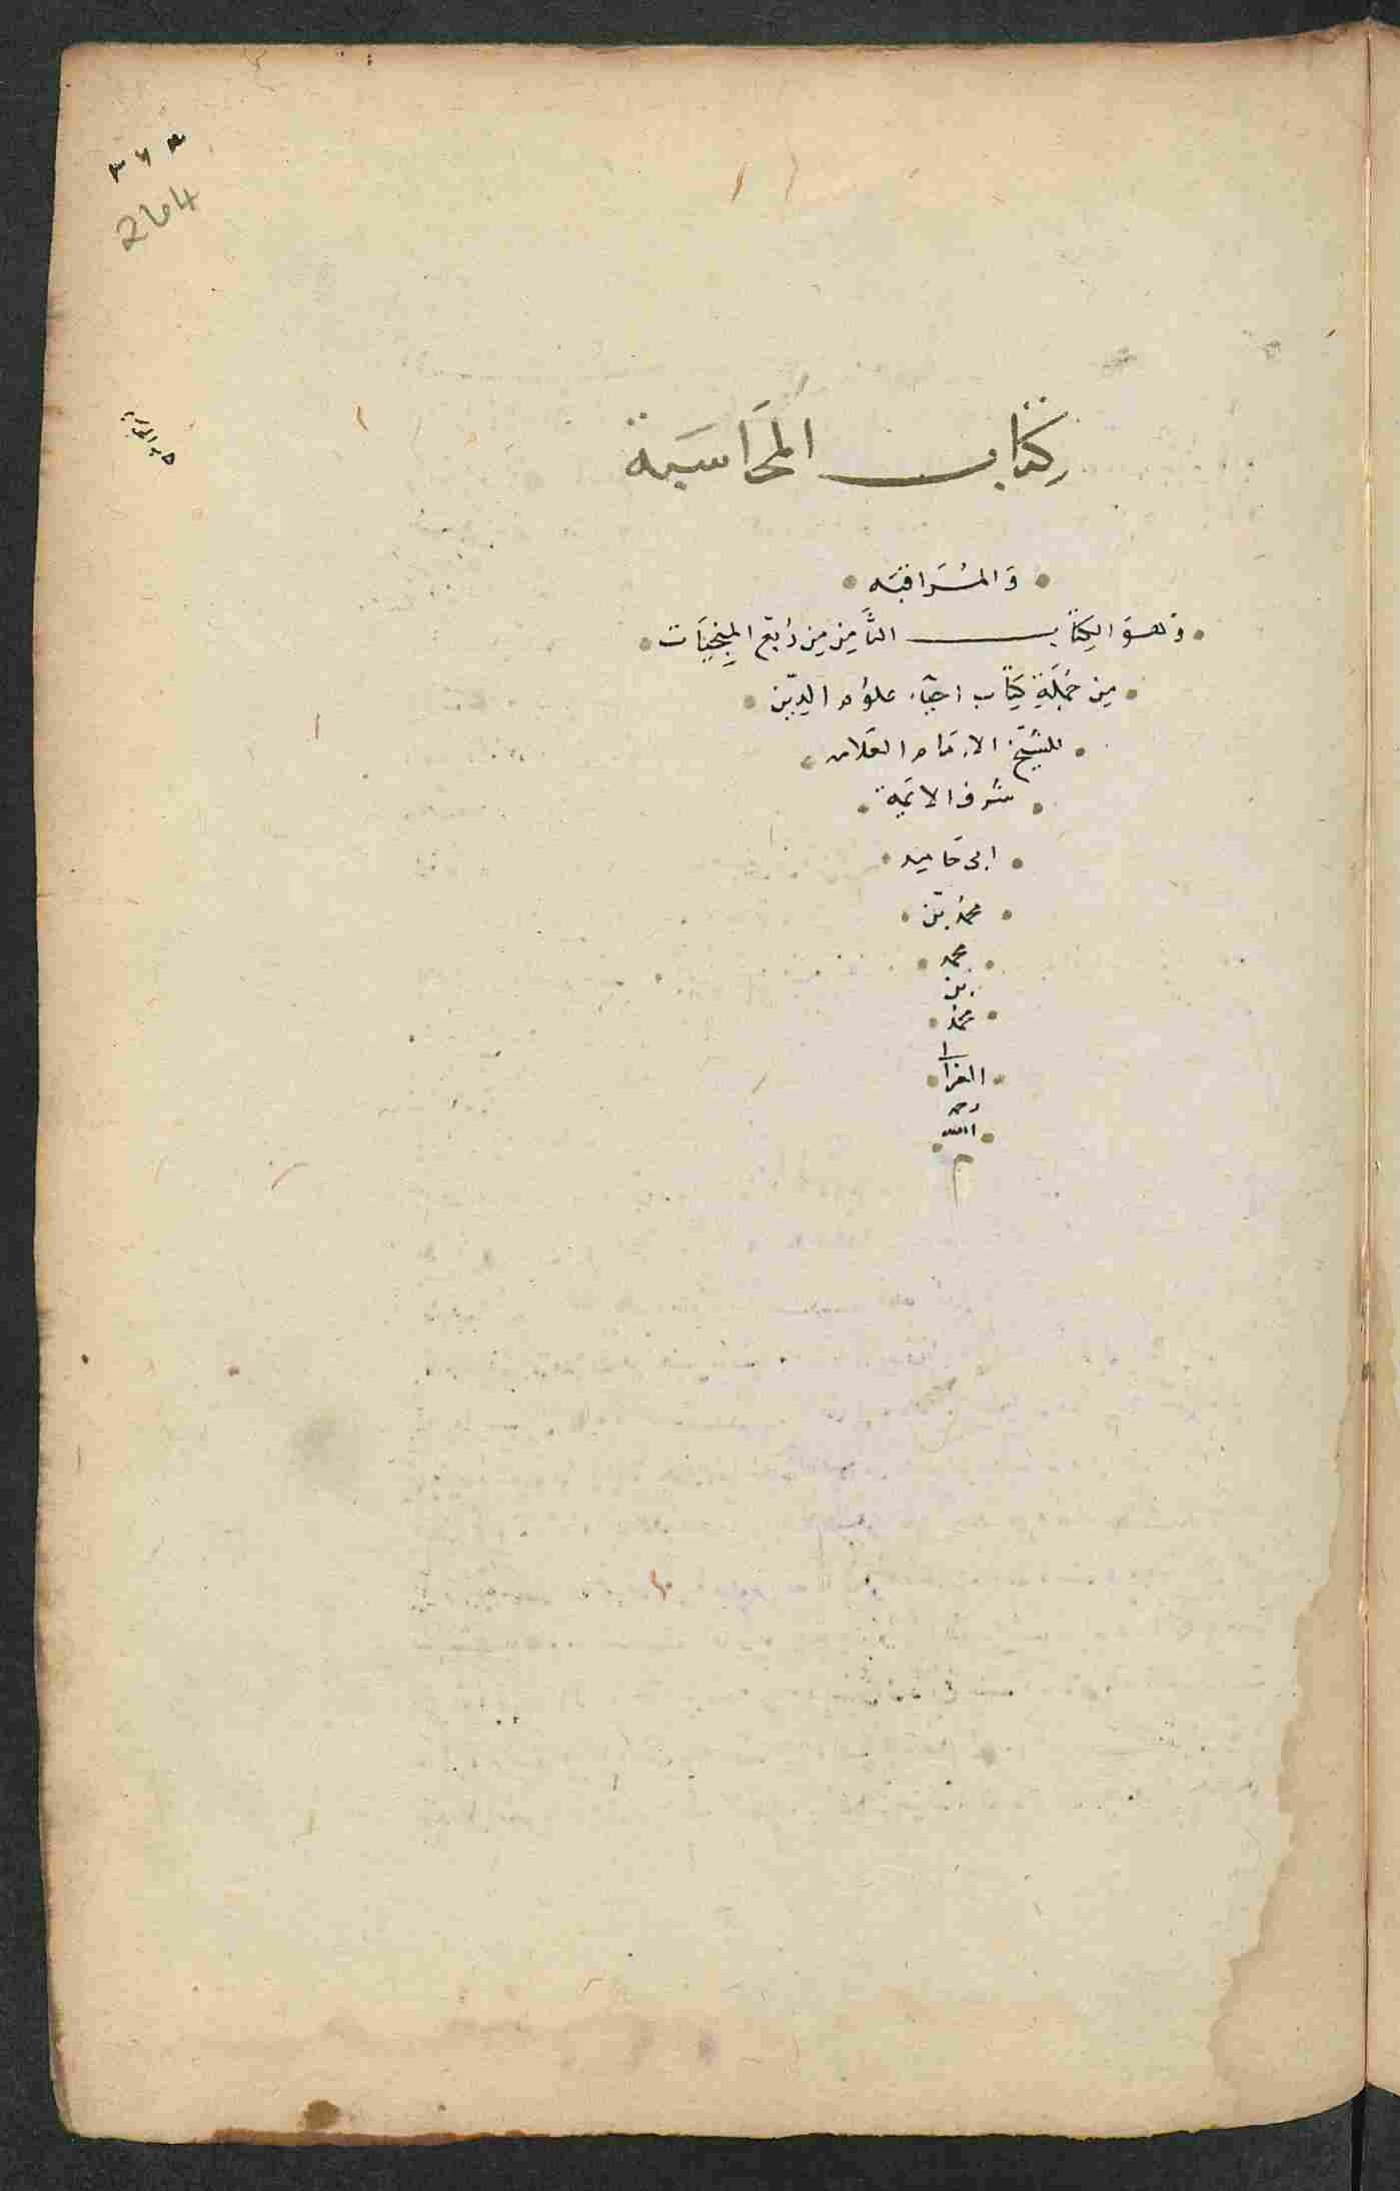 264
كِتَاب المحَاسَبة
وَالمُرَاقبَه
وَهوَ الكِتَاب الثَّامِن مِن رُبع المنجِيَات
مِن جُملَةِ كِتَاب احيَاء علوُم الدِّين
للشيّخ الامَام العَلامه
شرف الايمة
ابى حَامِد
محمدُ بّن
محمد
بن
محمد
الغزالى
رحمه
الله